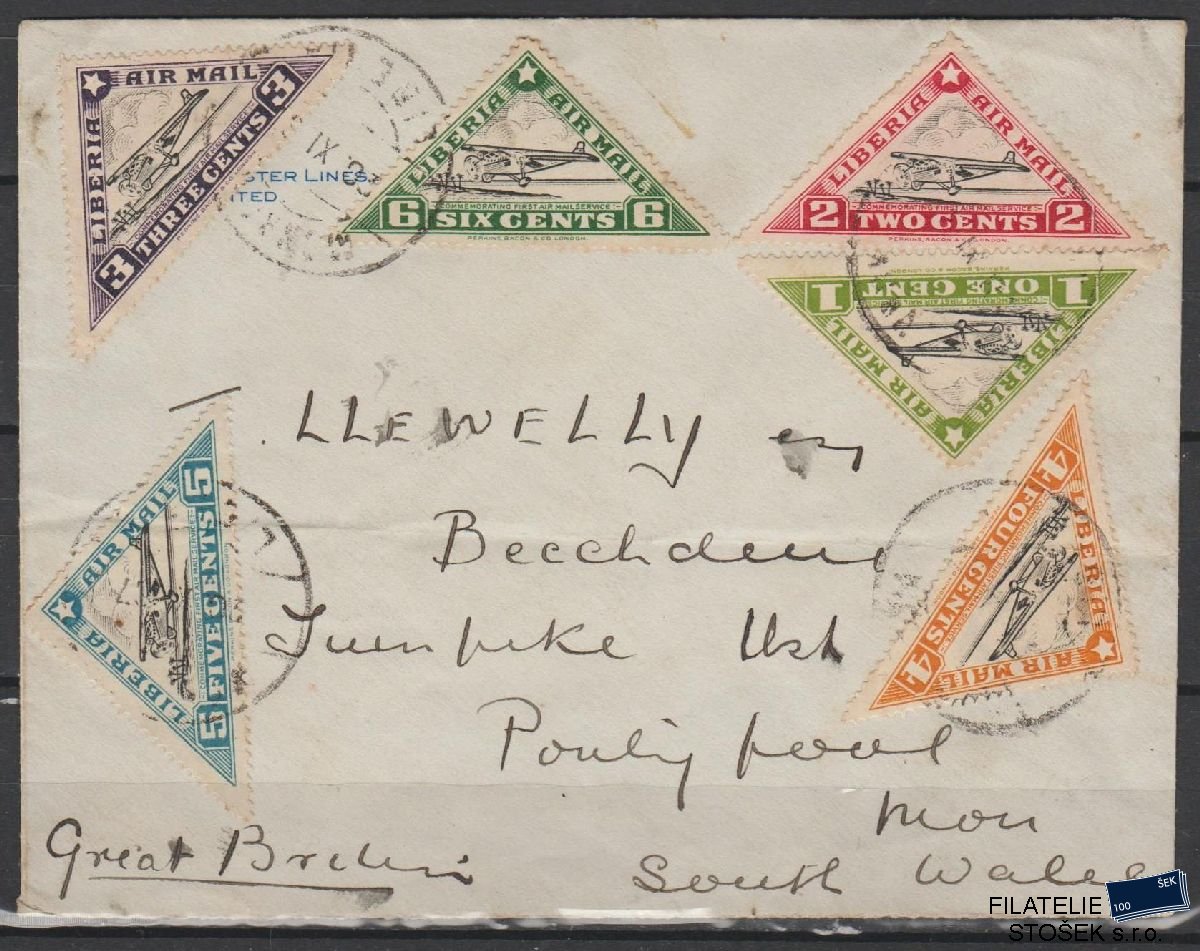 AIR MAIL
LIBERIA
3 THREE CENTS 3
STER LINES,
ITED.
LIBERIA AIR MAIL
COMMEMORATING FIRST AIR MAIL SERVICE
6 SIX CENTS 6
PERKINS, BACON & CO LONDON.
LIBERIA AIR MAIL
COMMEMORATING FIRST AIR MAIL SERVICE
2 TWO CENTS 2
PERKINS, BACON & CO. LONDON.
PERKINS, BACON & CO LONDON
1 ONE CENT 1
COMMEMORATING FIRST AIR MAIL SERVICE
LIBERIA AIR MAIL
LLEWELLYN
AIR MAIL
LIBERIA
5 FIVE CENTS 5
LIBERIA
AIR MAIL
4 FOUR CENTS 4
Beechdene
Turnpike
Pontypool
Mon
Great Britain
South Wales
FILATELIE
STOŠEK s.r.o.
100 ŠEK